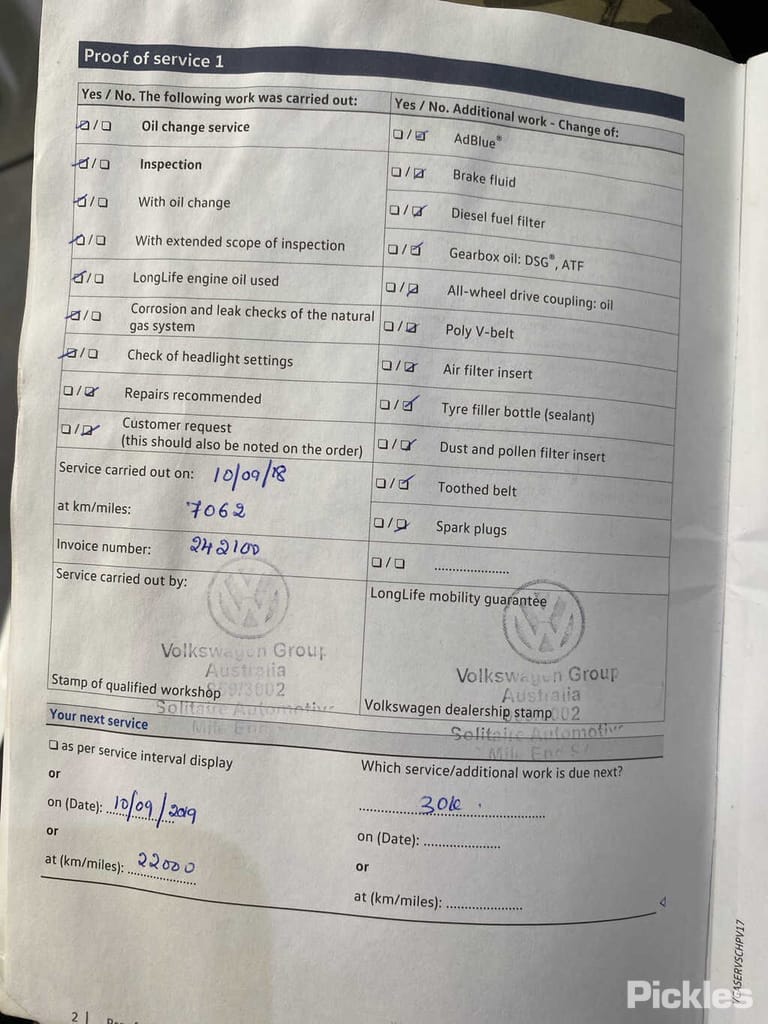 Proof of service 1
Yes / No. The following work was carried out:
☑/☐ Oil change service
☑/☐ Inspection
☑/☐ With oil change
☑/☐ With extended scope of inspection
☑/☐ LongLife engine oil used
☑/☐ Corrosion and leak checks of the natural
gas system
☑/☐ Check of headlight settings
☐/☑ Repairs recommended
☐/☑ Customer request
(this should also be noted on the order)
Service carried out on: 10/09/18
at km/miles: 7062
Invoice number: 242100
Service carried out by:
Volkswagen Group
Australia
Stamp of qualified workshop
Solitaire Automotive
Mile End
Yes / No. Additional work - Change of:
☐/☑ AdBlue®
☐/☑ Brake fluid
☐/☑ Diesel fuel filter
☐/☑ Gearbox oil: DSG®, ATF
☐/☑ All-wheel drive coupling: oil
☐/☑ Poly V-belt
☐/☑ Air filter insert
☐/☑ Tyre filler bottle (sealant)
☐/☑ Dust and pollen filter insert
☐/☑ Toothed belt
☐/☑ Spark plugs
☐/☐ ....................
LongLife mobility guarantee
Volkswagen Group
Australia
Volkswagen dealership stamp
Solitaire Automotive
Mile End
Your next service
☐ as per service interval display
or
on (Date): 10/09/2019
or
at (km/miles): 22000
Which service/additional work is due next?
30k.
on (Date): ....................
or
at (km/miles): ....................
2 |
Pickles